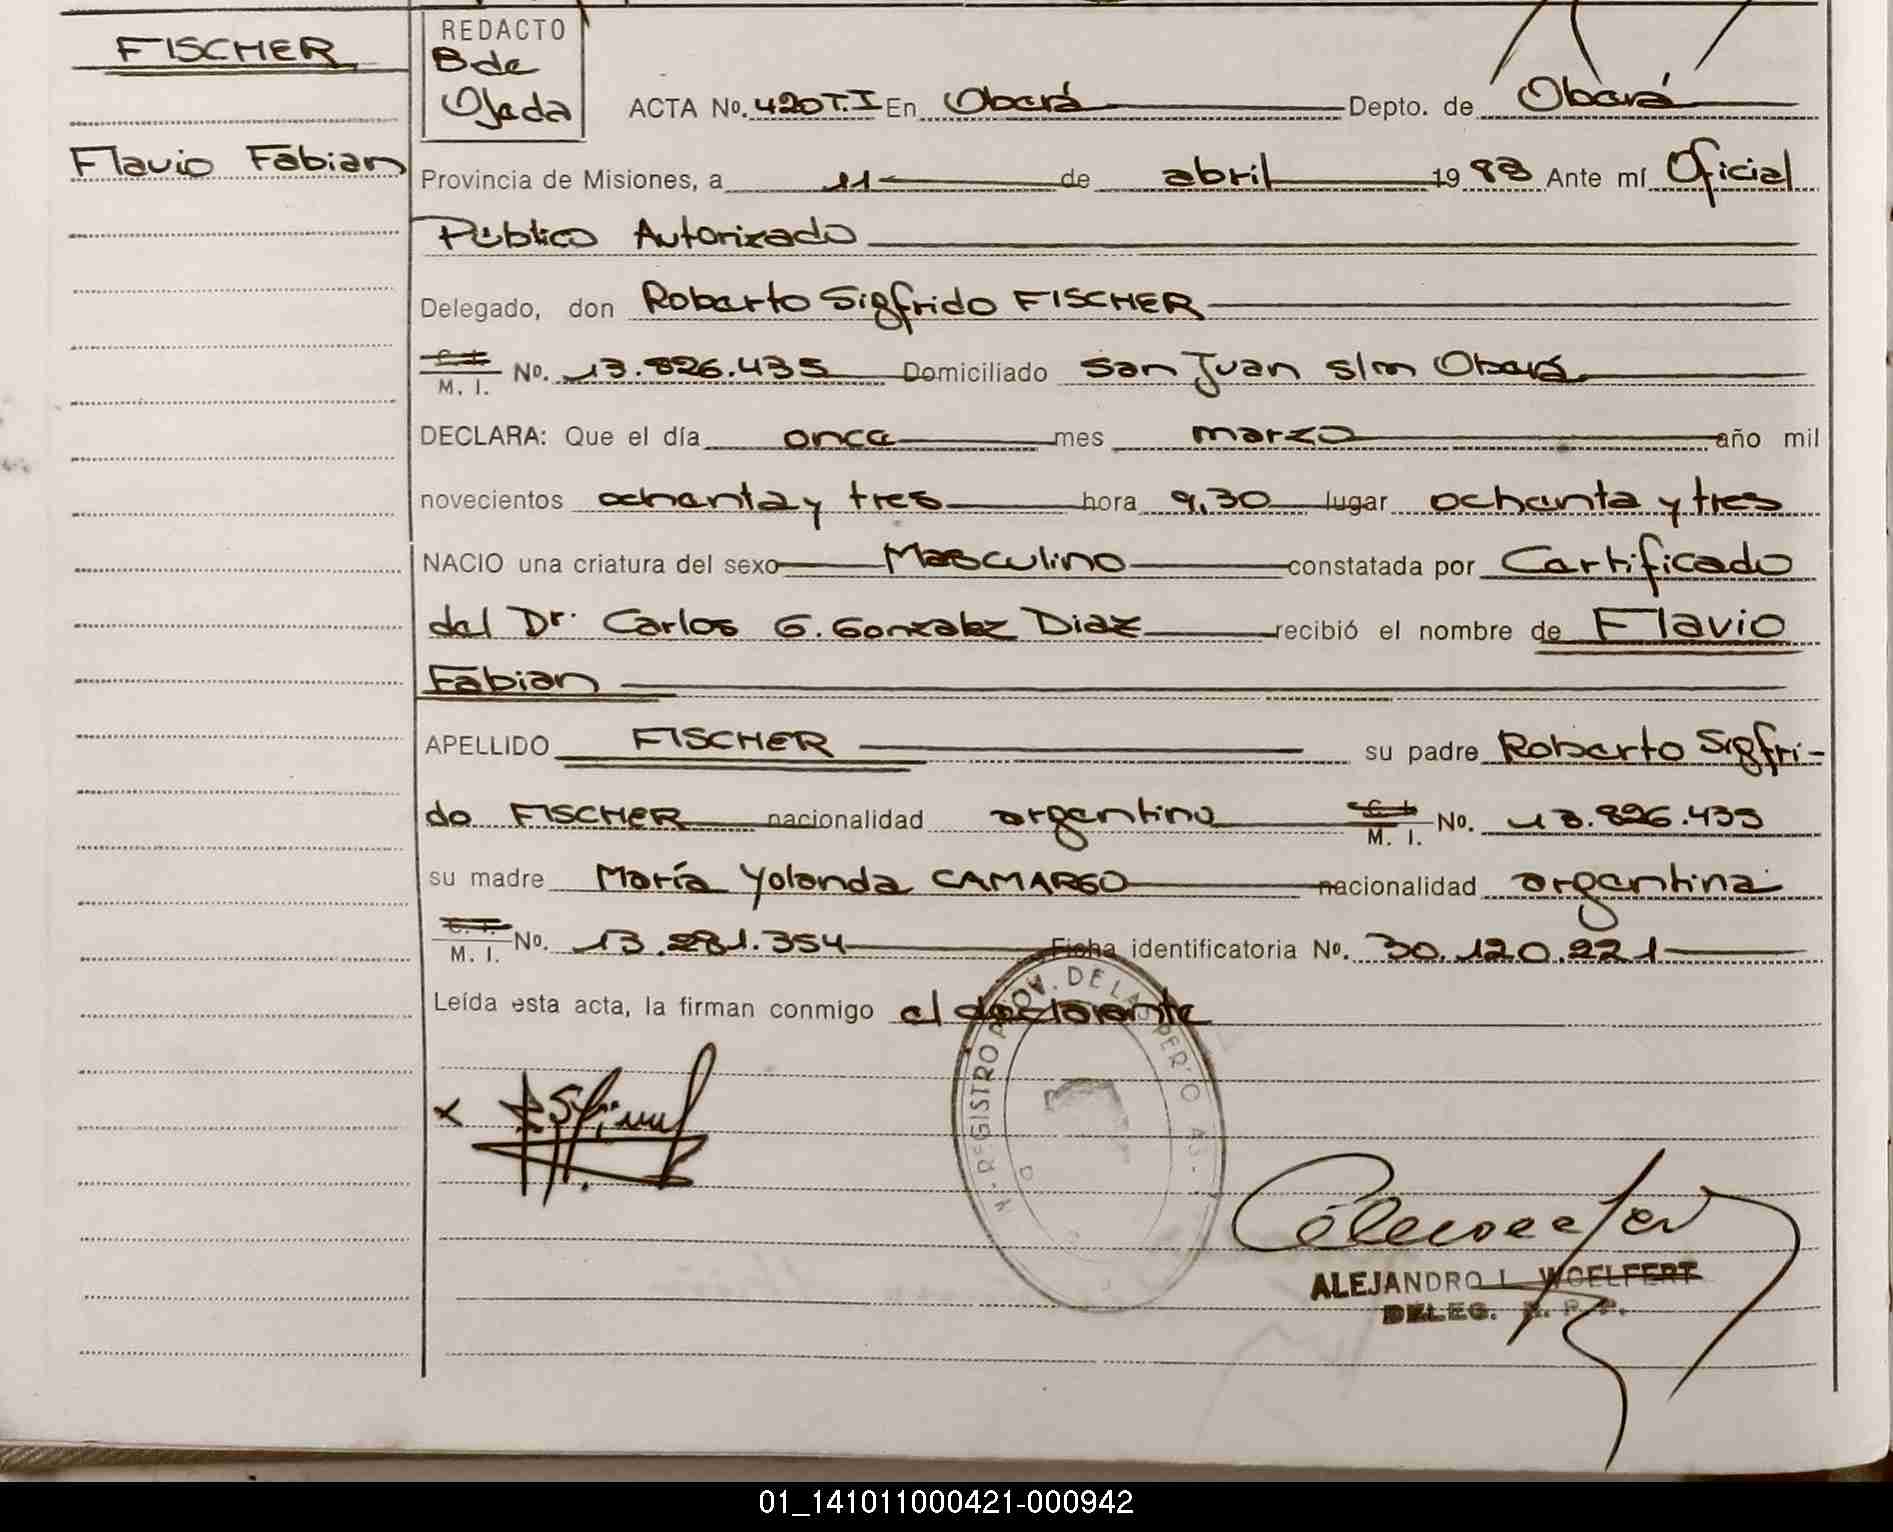 FISCHER
Flavio Fabian
REDACTO
B de
Ojeda
ACTA No. 420 T.I En Oberá Depto. de Oberá
Provincia de Misiones, a 11 de abril 1983 Ante mí Oficial
Público Autorizado
Delegado, don Roberto Sigfrido FISCHER
C. I. M. I. No. 13.826.435 Domiciliado San Juan s/m Oberá
DECLARA: Que el día once mes marzo año mil
novecientos ochenta y tres hora 9,30 lugar ochenta y tres
NACIO una criatura del sexo Masculino constatada por Certificado
del Dr. Carlos G. Gonzalez Diaz recibió el nombre de Flavio
Fabian
APELLIDO FISCHER su padre Roberto Sigfri-
do FISCHER nacionalidad argentino C. I. M. I. No. 13.826.435
su madre María Yolanda CAMARGO nacionalidad argentina
C. I. M. I. No. 13.281.354 Ficha identificatoria No. 30.120.221
Leída esta acta, la firman conmigo el declarante
REGISTRO PROV. DE LAS PER
ALEJANDRO L. WOELFERT
DELEG. R. P. P.
01_141011000421-000942